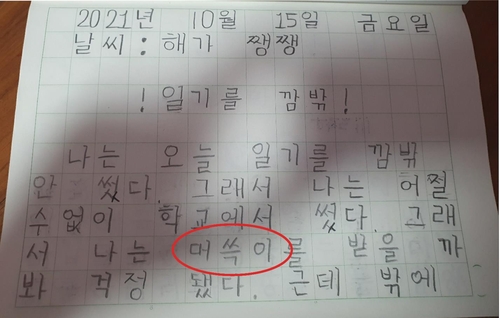 2021년 10월 15일 금요일
날씨:해가 쨍쨍
!일기를 깜밖!
나는 오늘 일기를 깜밖
안 썼다. 그래서 나는 어쩔
수없이 학교에서 썼다. 그래
서 나는 머쓱이를 받을 까
봐 걱정 됐다. 근테 밖에